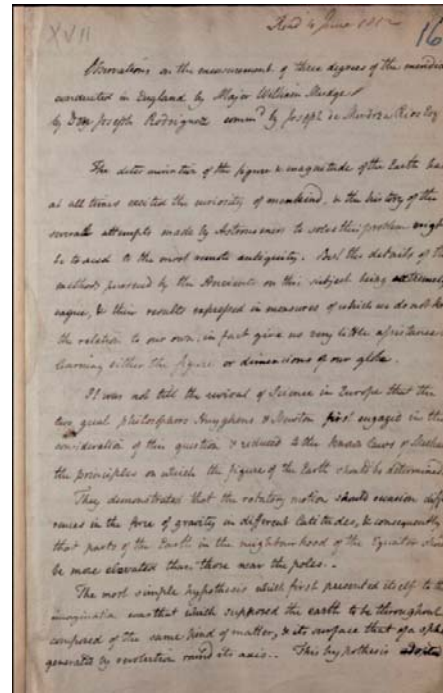 Read 4 June 1812
XVII
16
Observations on the measurement of three degrees of the meridian
conducted in England by Major William Mudge
by Don Joseph Rodriguez commd by Joseph de Mendoza Rios Esq
The determination of the figure & magnitude of the Earth has
at all times excited the curiosity of mankind, & the history of the
several attempts made by Astronomers to solve this problem might
be traced to the most remote antiquity. But the details of the
methods pursued by the Ancients on this subject being extremely
vague, & their results expressed in measures of which we do not know
the relation to our own, in fact give us very little assistance in
learning either the figure or dimensions of our globe.
It was not till the revival of Science in Europe that the
two great philosophers Huyghens & Newton first engaged in the
consideration of this question & reduced to the known laws of Mechan
the principles on which the figure of the Earth should be determined
They demonstrated that the rotatory motion should occasion diffe
rences in the force of gravity in different latitudes, & consequently
that parts of the Earth in the neighbourhood of the Equator should
be more elevated than those near the poles.
The most simple hypothesis which first presented itself to the
imagination was that which supposed the earth to be throughout
composed of the same kind of matter, & its surface that of a sphe
generated by revolution round its axis. This hypothesis adopted